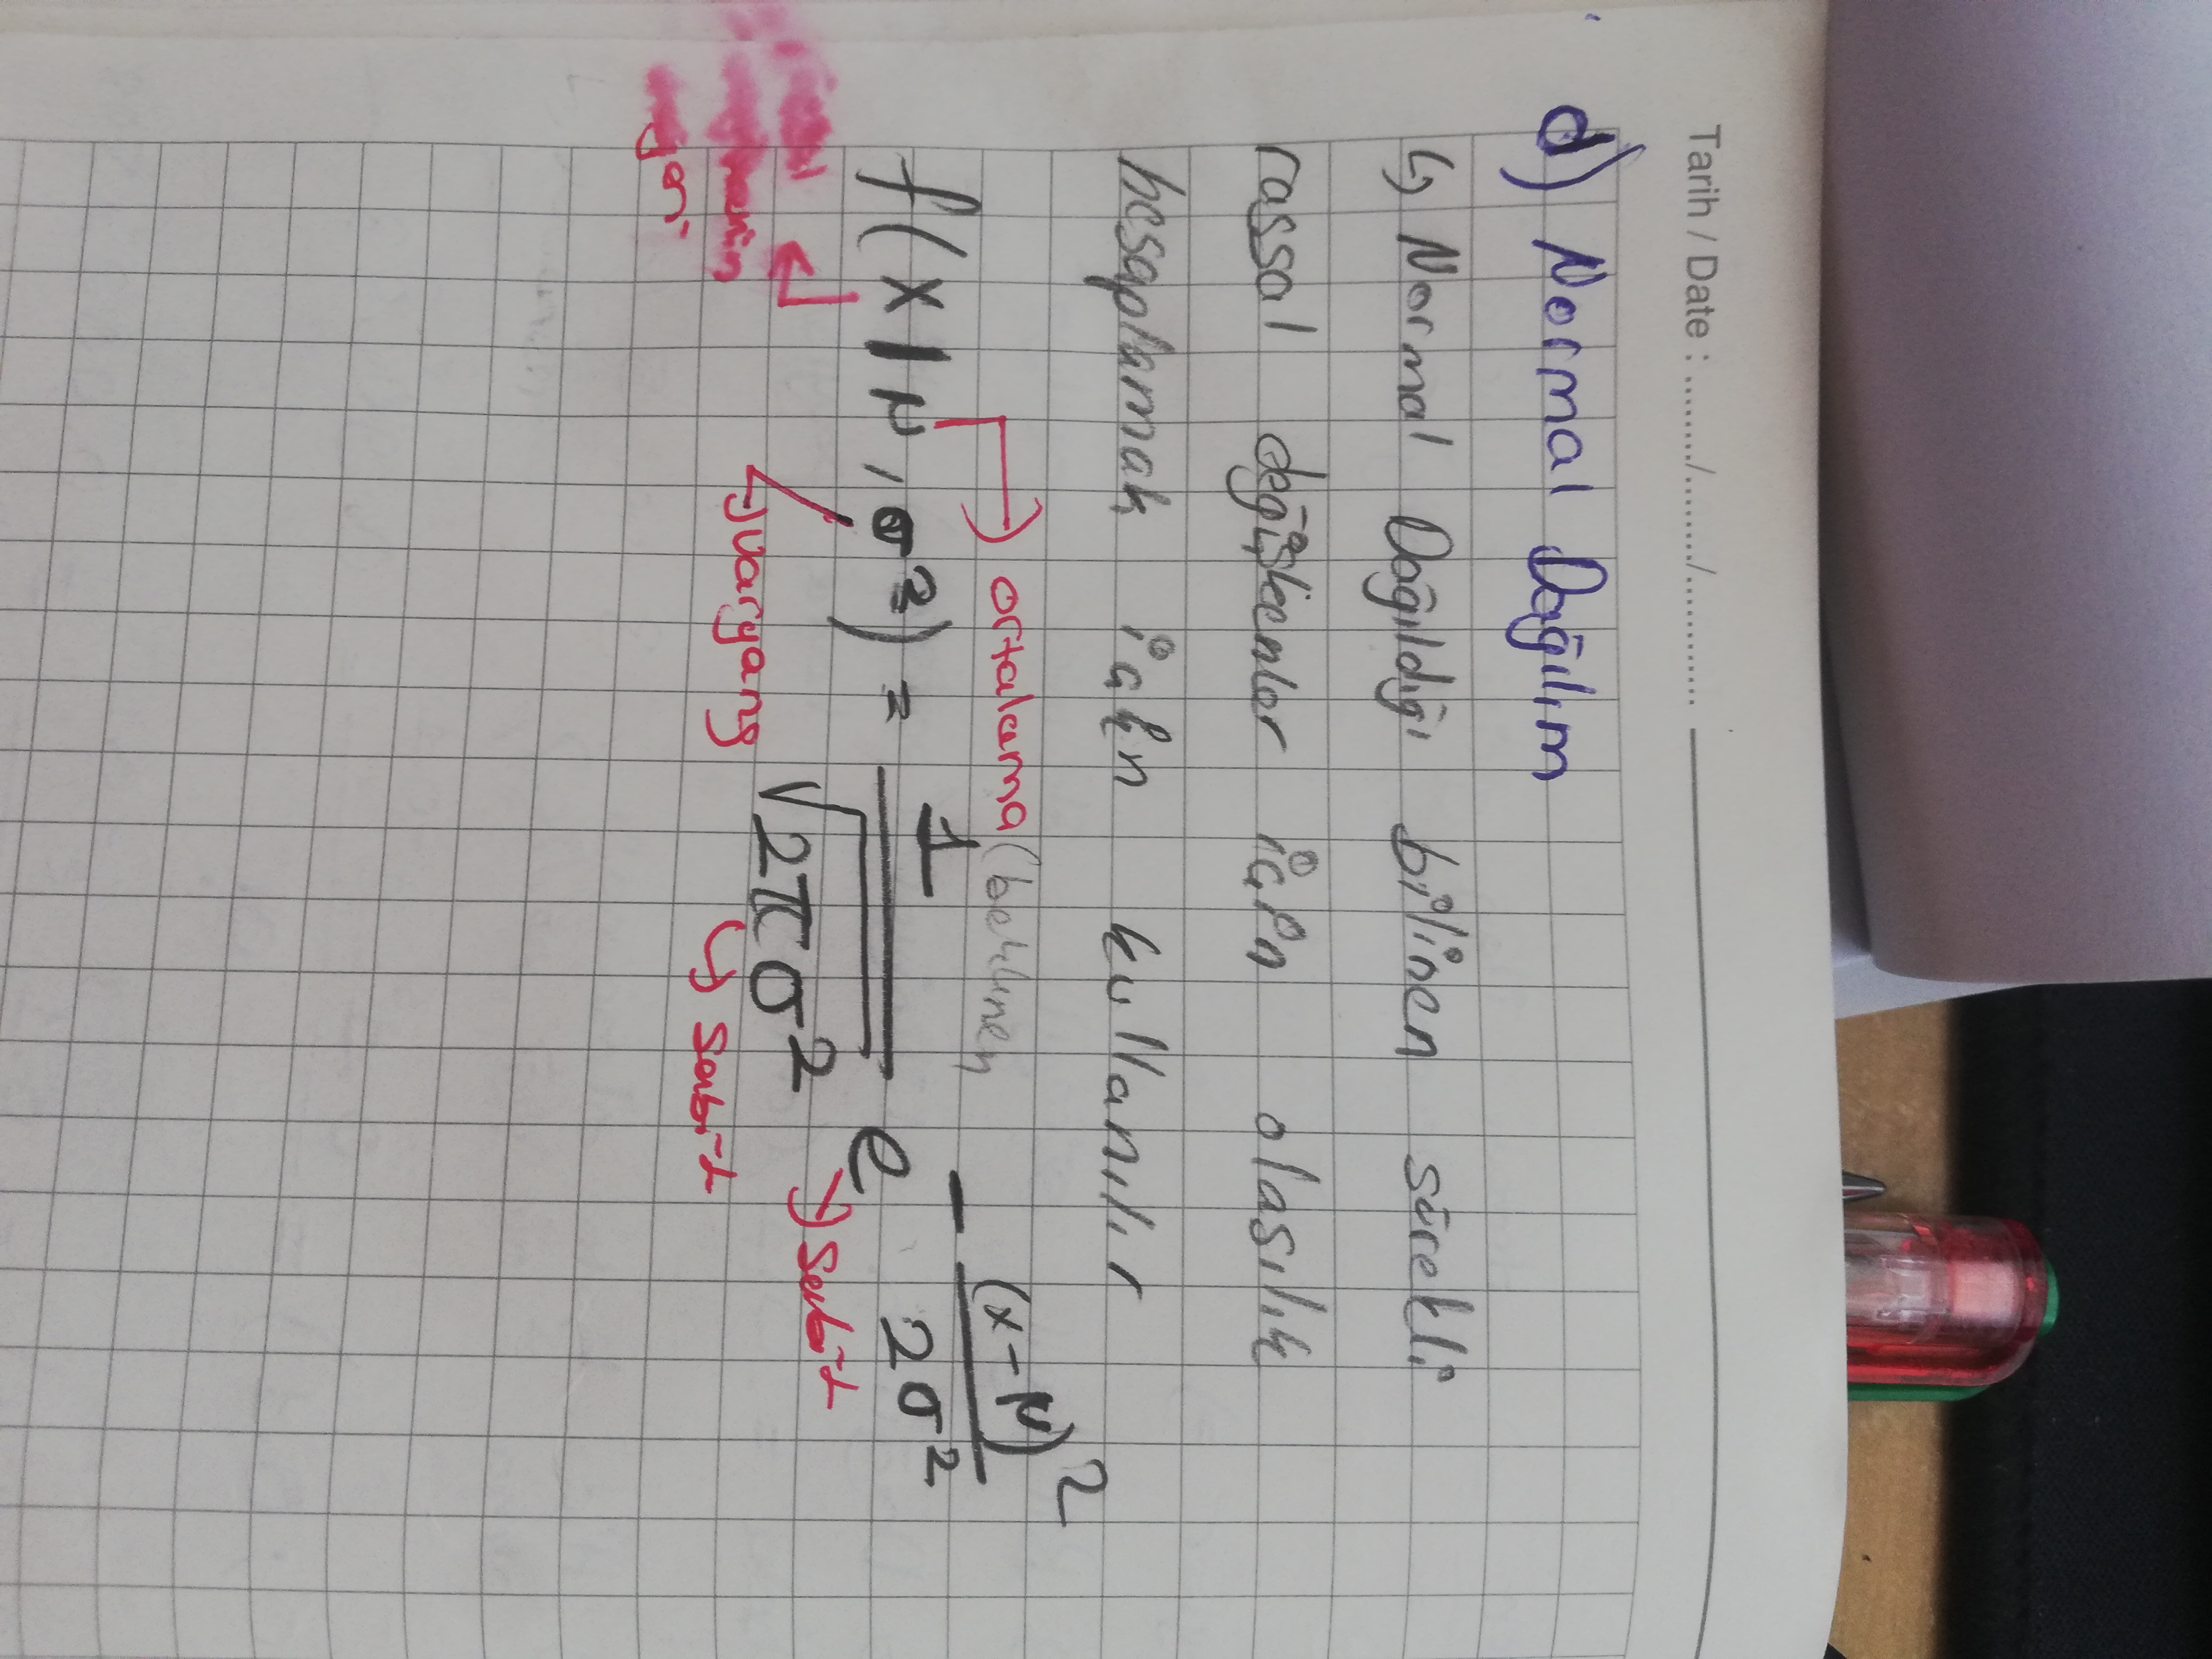 Tarih / Date : ......../......../............
d) Normal Dağılım
↳ Normal Dağıldığı bilinen sürekli
rassal değişkenler için olasılık
hesaplamak için kullanılır
ortalama (beklenen
f(x|μ, σ²) = 1 / √2πσ² e - (x-μ)² / 2σ²
sabit
varyans
sabit